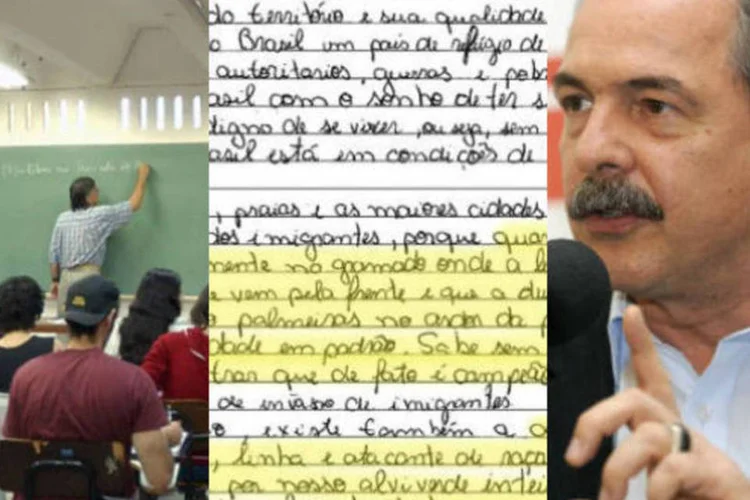 do território e sua qualidade
o Brasil um país de refúgio de
autoritarios, guerras e pob
asil com o sonho de ter s
digno de se viver, ou seja, sem
asil está em condições de
, praias e as maiores cidades
dos imigrantes, porque quan
mente no gramado onde a l
e vem pela frente e que a du
o palmeiras no ardor da p
dade em padrão. Sabe sem
trar que de fato é campeão
de invasão de imigrantes
o, existe também a
, linha e atacante de raça
por nosso alviverde intei